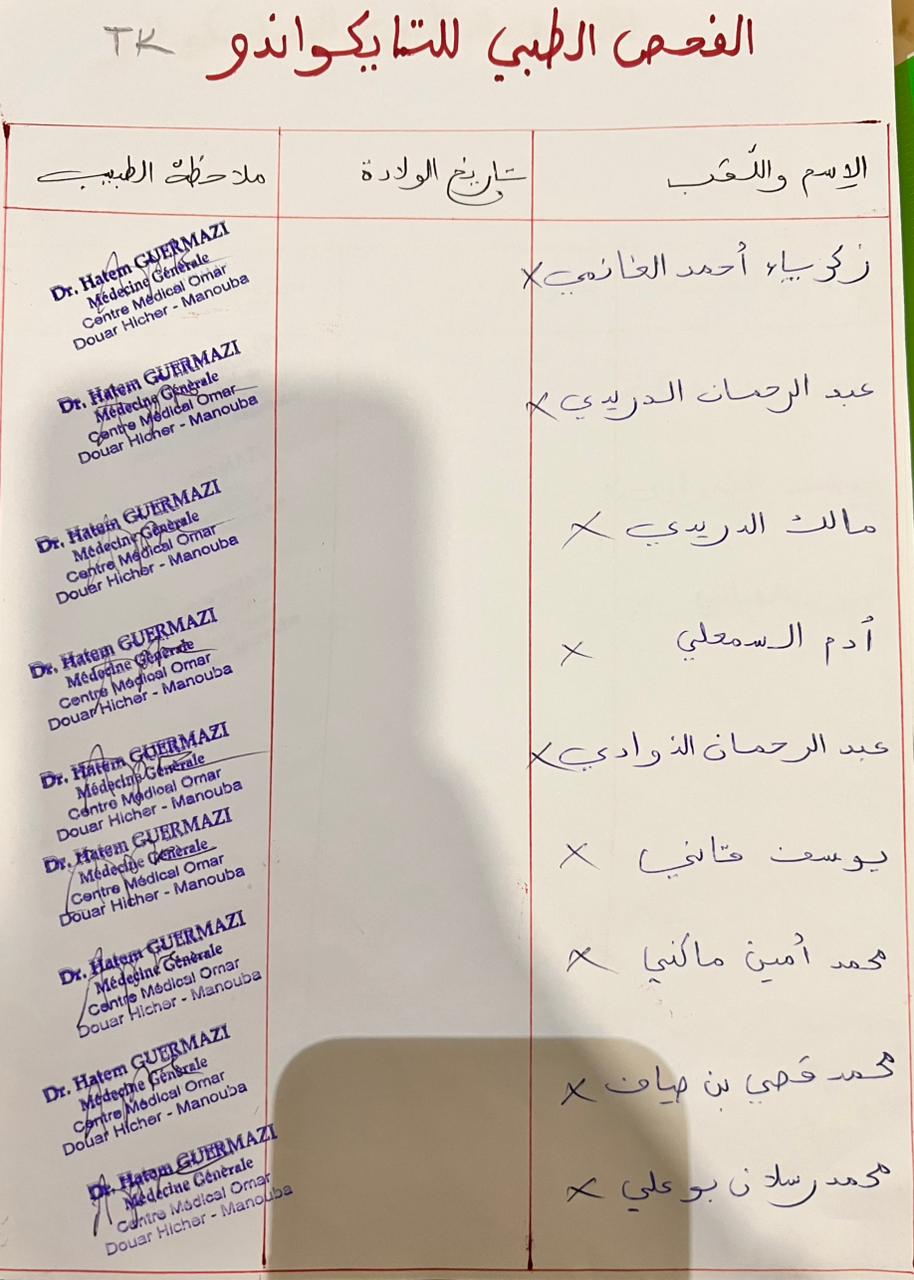 الفحص الطبي للتايكواندو TK
الإسم واللّقب تاريخ الولادة ملاحظة الطبيب
زكرياء أحمد الغانمي X
Dr. Hatem GUERMAZI
Médecine Générale
Centre Médical Omar
Douar Hicher - Manouba
عبد الرحمان الدريدي X
Dr. Hatem GUERMAZI
Médecine Générale
Centre Médical Omar
Douar Hicher - Manouba
مالك الدريدي X
Dr. Hatem GUERMAZI
Médecine Générale
Centre Médical Omar
Douar Hicher - Manouba
أدم السمعلي X
Dr. Hatem GUERMAZI
Médecine Générale
Centre Médical Omar
Douar Hicher - Manouba
عبد الرحمان الذوادي X
Dr. Hatem GUERMAZI
Médecine Générale
Centre Médical Omar
Douar Hicher - Manouba
يوسف X
Dr. Hatem GUERMAZI
Médecine Générale
Centre Médical Omar
Douar Hicher - Manouba
محمد أمين ماكني X
Dr. Hatem GUERMAZI
Médecine Générale
Centre Médical Omar
Douar Hicher - Manouba
محمد قصي بن ضياف X
Dr. Hatem GUERMAZI
Médecine Générale
Centre Médical Omar
Douar Hicher - Manouba
محمد رسلان بوعلي X
Dr. Hatem GUERMAZI
Médecine Générale
Centre Médical Omar
Douar Hicher - Manouba